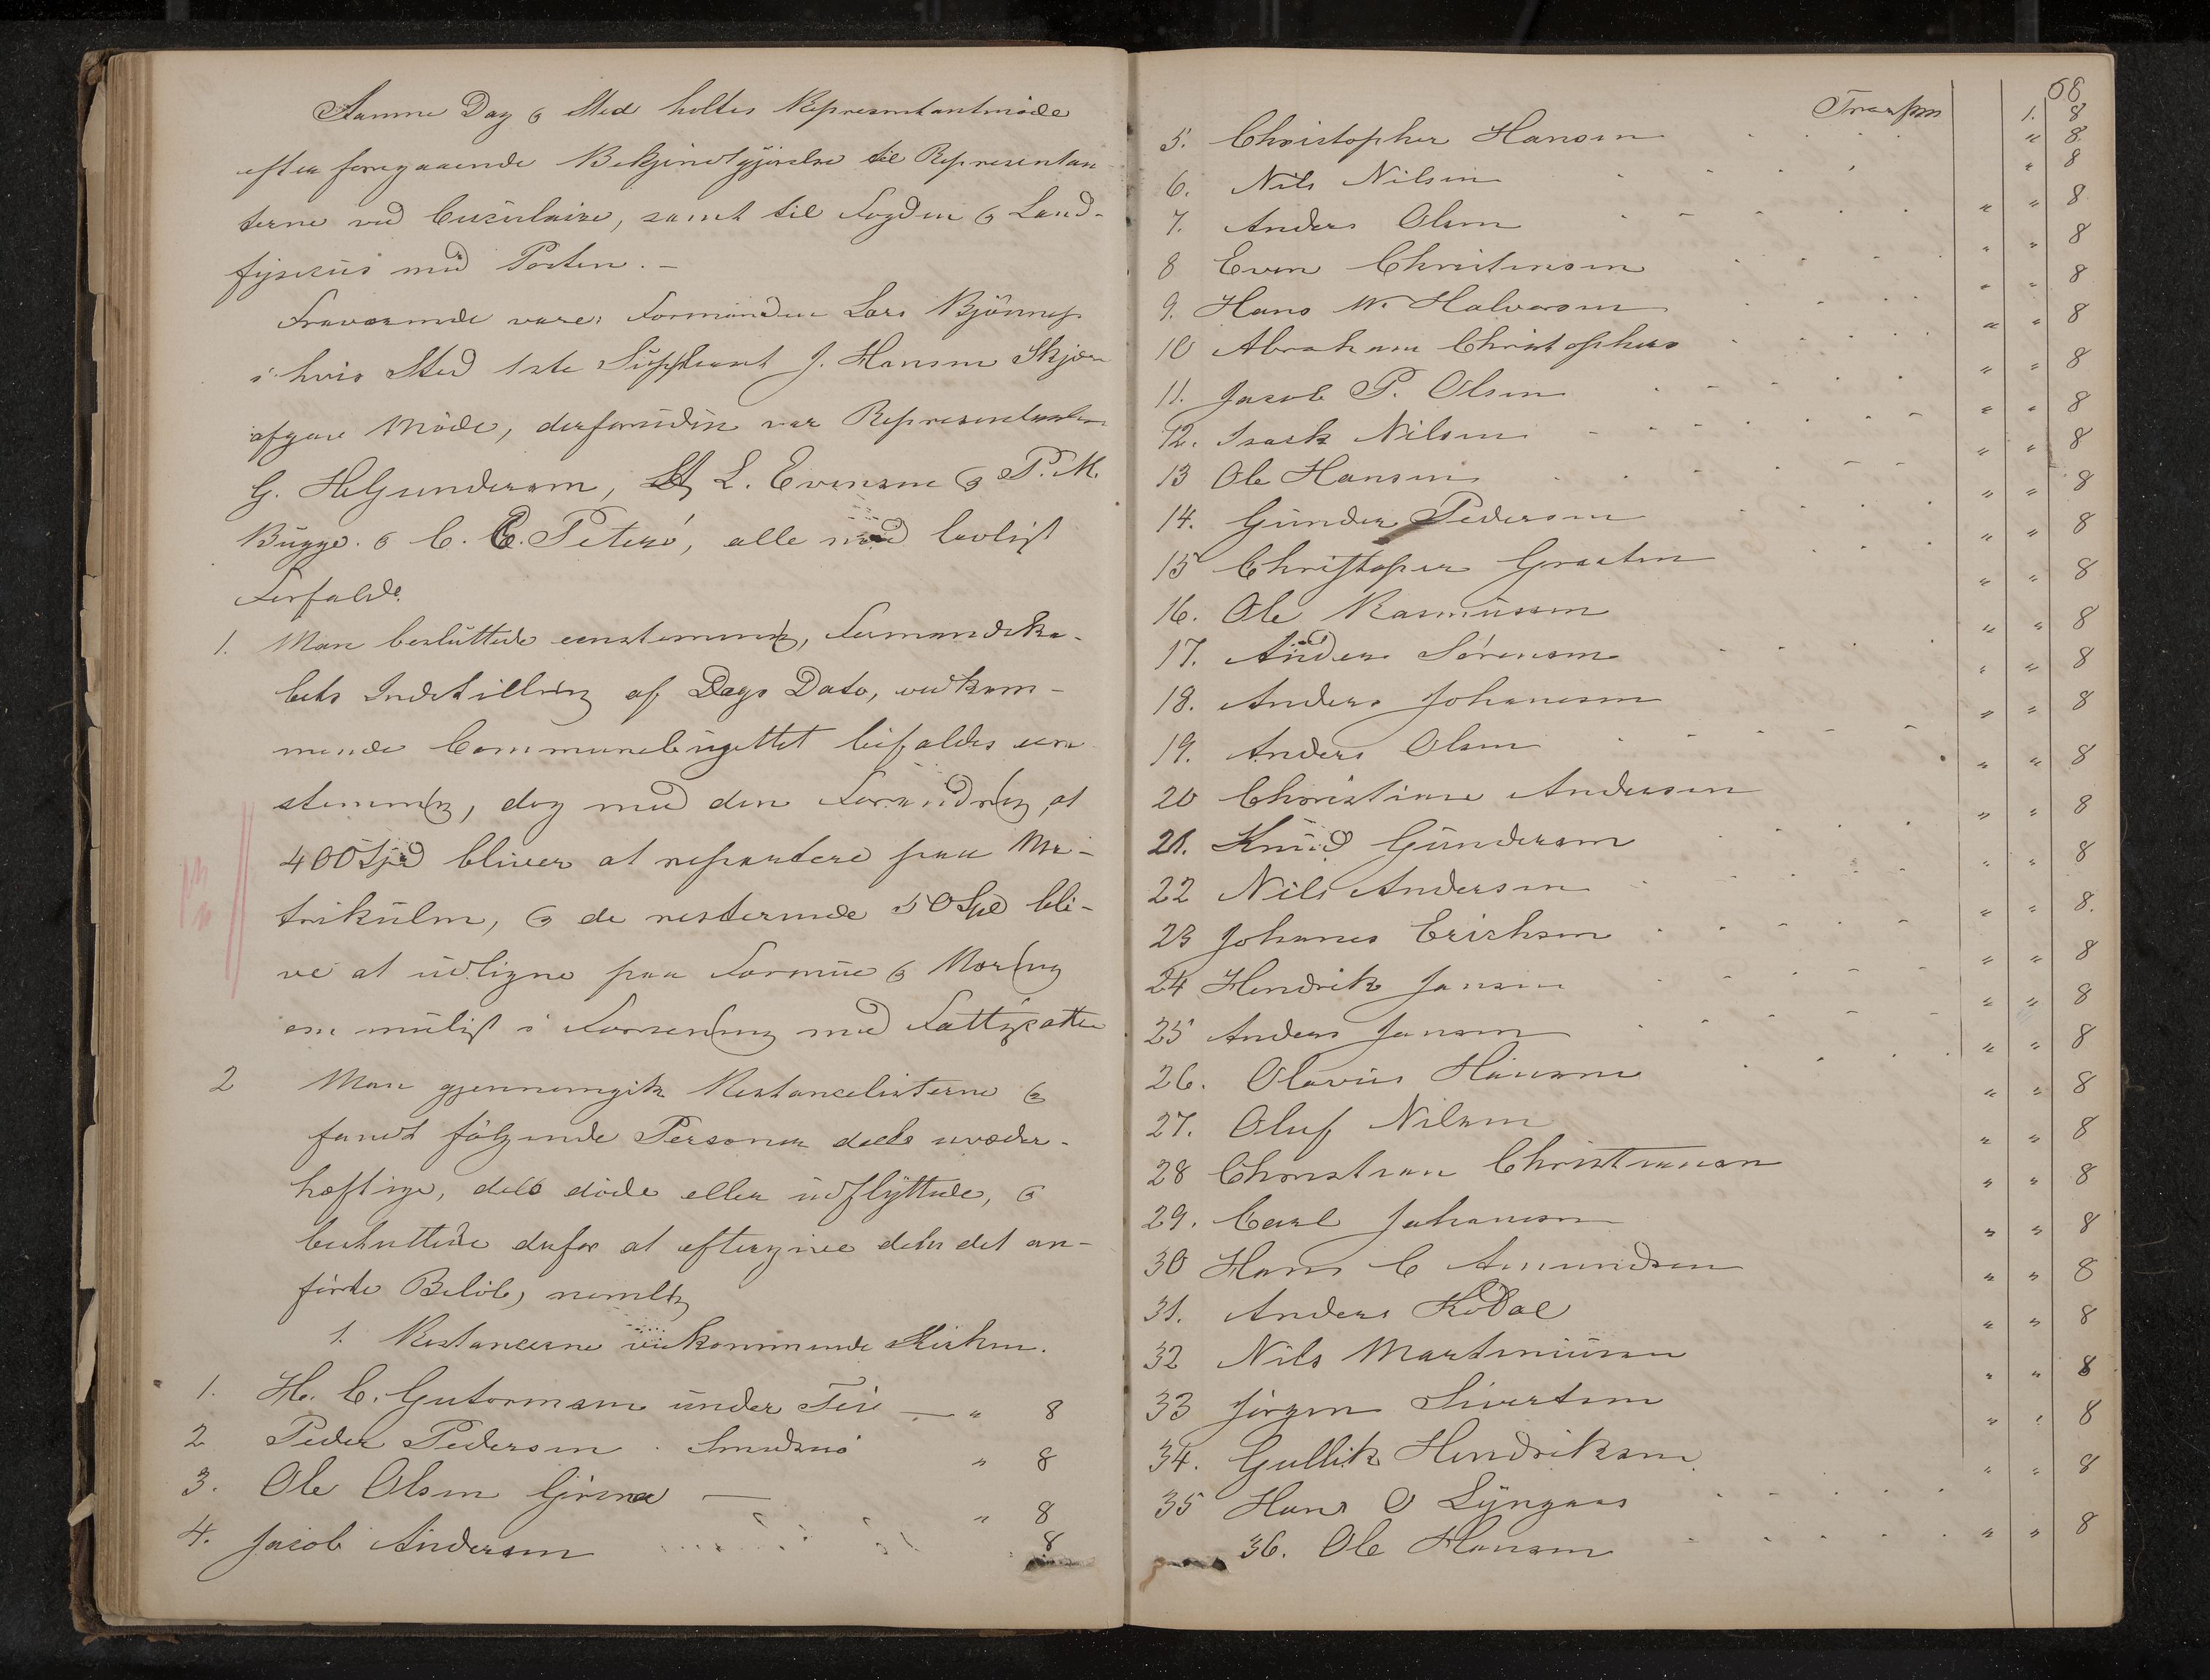 Samme Dag og Sted holtes Representantmøde
efter foregaaende Bekjendtgjørelse til Representan
terne ved Circulaire, samt til Fogden og Land-
fysicus med Posten. -
Fraværende vare: Formanden Lars Bjönnes
i hvis Sted 1ste Suppleant J. Hansen Skjær
afgav Møde, derforuden var Representanterne
G. H. Gundersen, L. Evensen og P. M.
Bugge. og C. C. Petersø, alle med lovligt
Forfald.
1. Man besluttede eenstemmig, Formandska-
bets Indstilling af Dags Dato, vedkom-
mende Communebugettet bifaldes een
stemmig, dog med den Forandring, at
400 Spd bliver at repartere paa Ma-
trikulen, og de resterende 50 Spd bli-
ve at udligne paa Formue og Næring
om muligt i Forening med Fattigskatten
2 Man gjennemgik Restancelisterne og
fandt følgende Personer deels uvæder-
hæftige, dels døde eller udflyttede, og
besluttede derfor at eftergive dem det an-
førte Beløb, nemlig
1. Restancerne vedkommende Kirken.
1. H. C. Gutormsen under Feie — " 8
2 Peder Pedersen . Smidsrø " 8
3. Ole Olsen Grina — " 8
4. Jacob Andersen 8
68
Transp 1. 8
5. Christopher Hansen " 8
6. Nils Nilsen " 8
7. Anders Olsen " " 8
8 Even Christensen " " 8
9. Hans M. Halvorsen " " 8
10 Abraham Christophers " " 8
11. Jacob P. Olsen " " 8
12. Isack Nilsen " " 8
13 Ole Hansen " " 8
14. Gunder Pedersen " " 8
15 Christoper Graaten " " 8
16. Ole Rasmussen " " 8
17. Anders Sörensen " " 8
18. Anders Johanesen " " 8
19. Anders Olsen " " 8
20 Christian Andersen " " 8
21. Knud Gundersen " " 8
22 Nils Andersen " " 8
23 Johanes Erichsen " " 8.
24 Hendrik Jansen " " 8
25 Anders Jansen " " 8
26. Olavus Hansen " " 8
27. Oluf Nilsen " " 8
28 Christian Christiansen " " 8
29. Carl Johansen " " 8
30 Hans C Amundsen " " 8
31. Anders Kodal " " 8
32 Nils Martiniusen " " 8
33 Jörgen Sivertsen " " 8
34. Gullik Hendriksen " " 8
35 Hans O Lyngaas " " 8
36. Ole Hansen " " 8